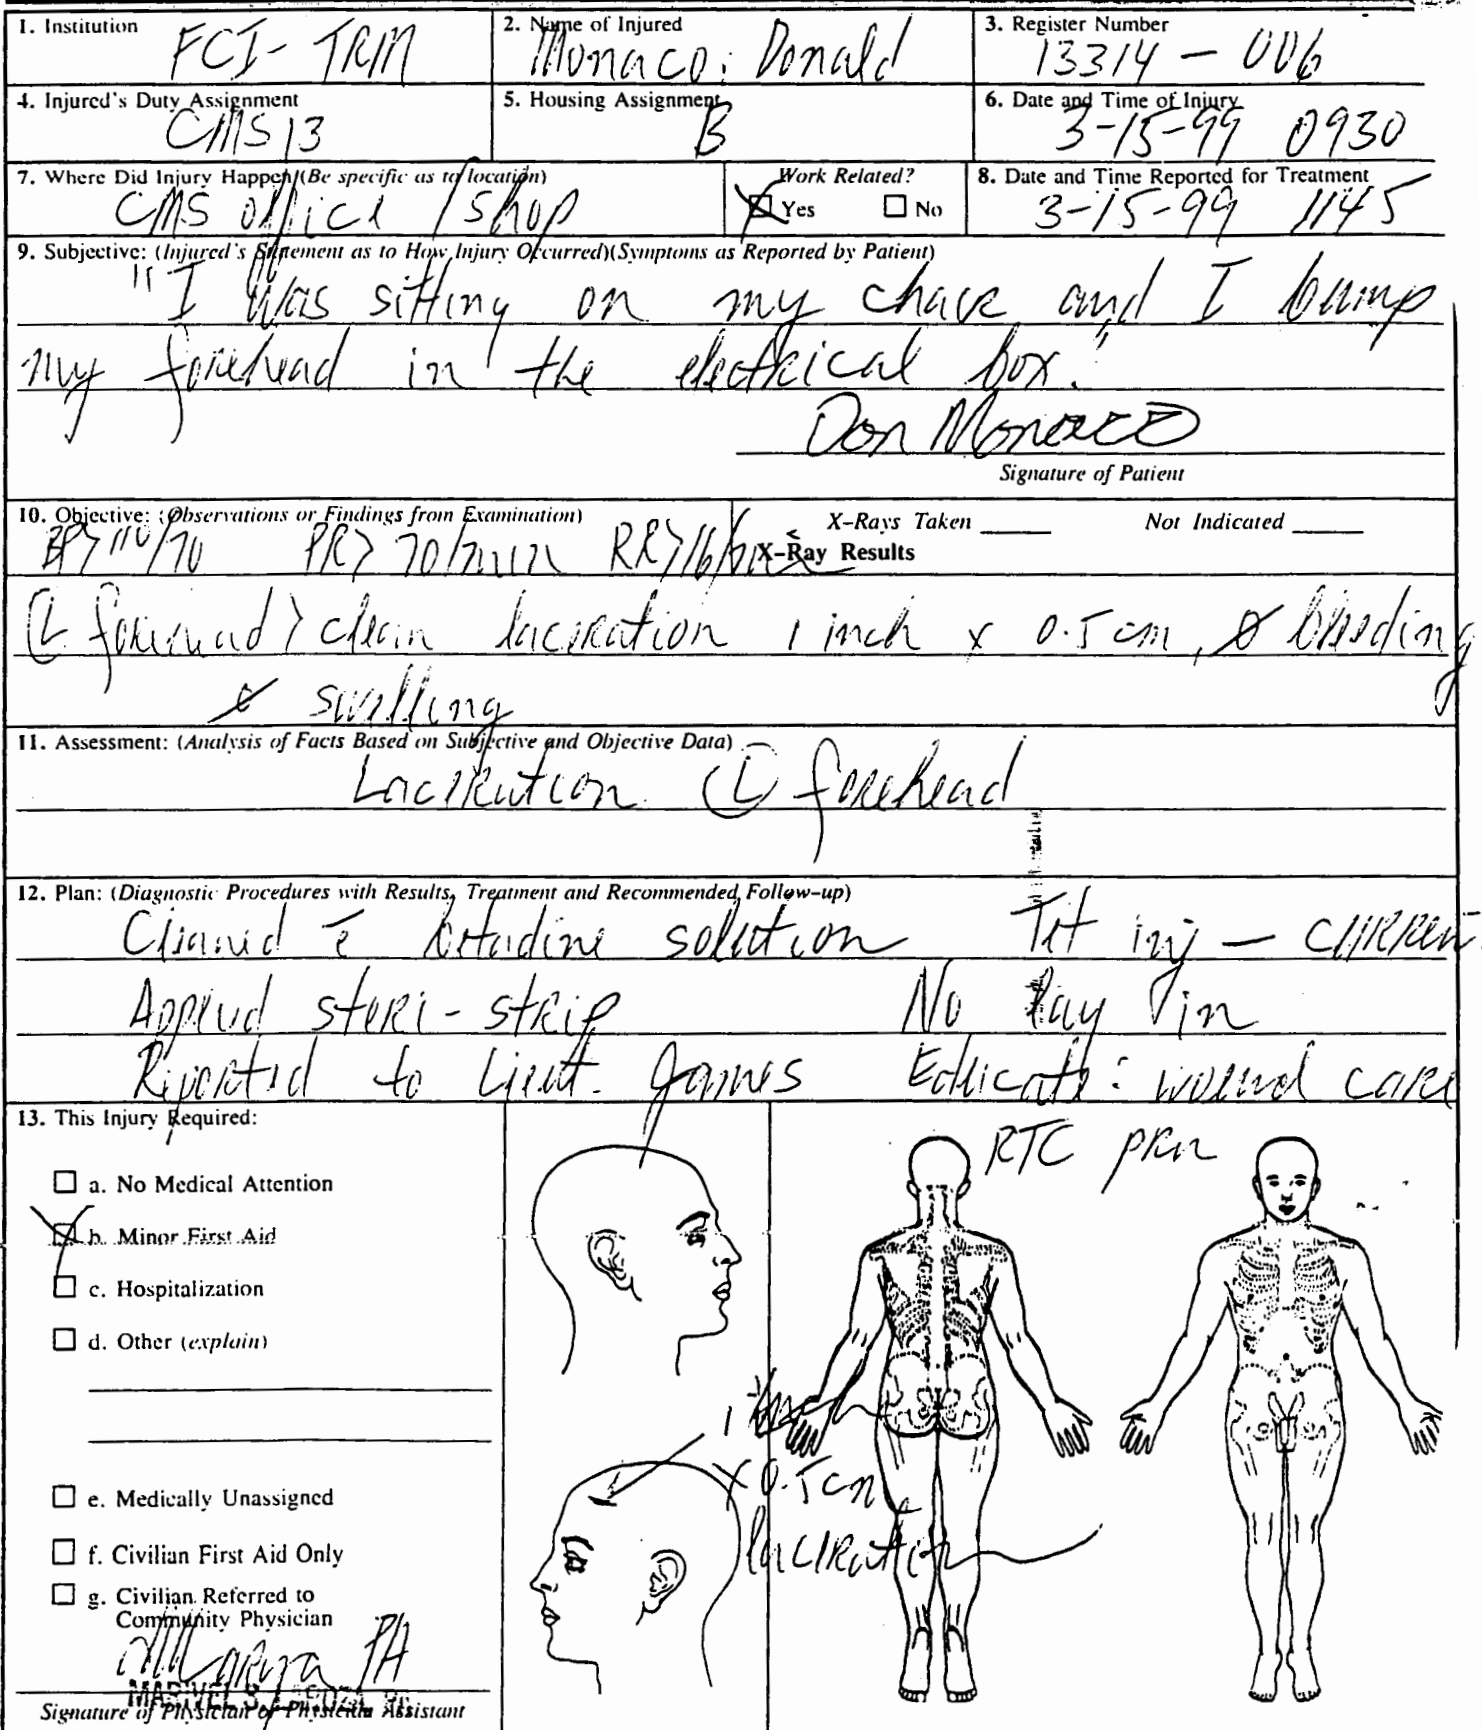 1. Institution
FCI- TRM
2. Name of Injured
Monaco, Donald
3. Register Number
13314 - 006
4. Injured's Duty Assignment
CMS 13
5. Housing Assignment
B
6. Date and Time of Injury
3-15-99 0930
7. Where Did Injury Happen (Be specific as to location)
CMS office / shop
Work Related?
Yes No
8. Date and Time Reported for Treatment
3-15-99 1145
9. Subjective: (Injured's Statement as to How Injury Occurred)(Symptoms as Reported by Patient)
"I was sitting on my and I bump
my forehead in the electrical box."
Don Monaco
Signature of Patient
10. Objective: (Observations or Findings from Examination)
X-Rays Taken Not Indicated
BP> 110/70 PR> 70/min RR> 16/min
X-Ray Results
L forehead > clean laceration 1 inch x 0.5 cm, ø bleeding
ø swelling
11. Assessment: (Analysis of Facts Based on Subjective and Objective Data)
Laceration (L) forehead
12. Plan: (Diagnostic Procedures with Results, Treatment and Recommended Follow-up)
Cleaned c̄ betadine solution Tet inj — current
Applied steri-strip No lay in
Reported to Lieut. James Educate: wound care
RTC prn
13. This Injury Required:
a. No Medical Attention
b. Minor First Aid
c. Hospitalization
d. Other (explain)
1 inch
x 0.5 cm
laceration
e. Medically Unassigned
f. Civilian First Aid Only
g. Civilian Referred to
Community Physician
PA
Signature of Physician or Physician Assistant